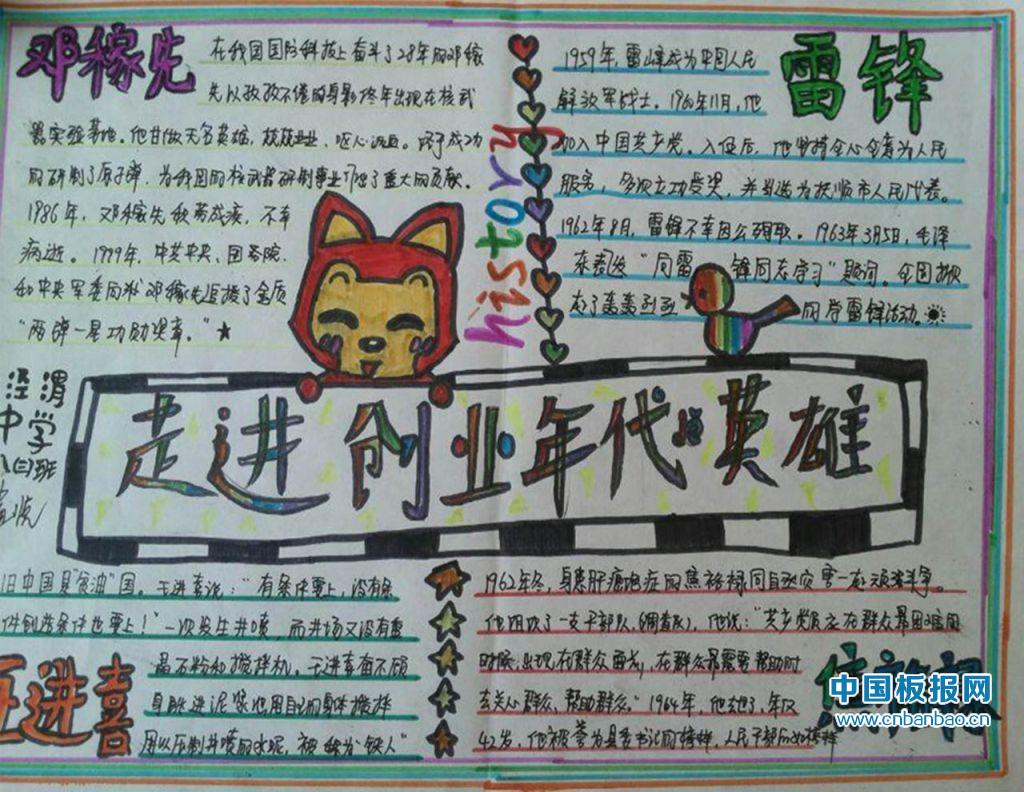 邓稼先
在我国国防科技上奋斗了28年的邓稼
先以孜孜不倦的身影终年出现在核武
器实验基地。他甘做无名英雄,兢兢业业,呕心沥血。终于成功
的研制了原子弹,为我国的核武器研制事业作出了重大的贡献。
1986年,邓稼先积劳成疾,不幸
病逝。1999年,中共中央、国务院
和中央军委向邓稼先追授了金质
"两弹一星功勋奖章。"
history
雷锋
1959年,雷锋成为中国人民
解放军战士。1960年11月,他
加入中国共产党。入伍后,他坚持全心全意为人民
服务,多次立功受奖,并当选为抚顺市人民代表。
1962年8月,雷锋不幸因公殉职。1963年3月5日,毛泽
东表发"向雷锋同志学习"题词。全国掀
起了轰轰烈烈向学雷锋活动。
走进创业年代的英雄
泾渭
中学
八(三)班
旧中国是"贫油"国。王进喜说:"有条件要上,没有条
件创造条件也要上!"一次发生井喷,而井场又没有重
晶石粉和搅拌机,王进喜奋不顾
身跳进泥浆池用自己的身体搅拌
用以压制井喷的水泥,被称为"铁人"
王进喜
1962年冬,身患肝癌的焦裕禄同自然灾害一起顽强斗争。
他说:"共产党员应在群众最困难的
时候,出现在群众面前,在群众最需要帮助时
去关心群众,帮助群众。"1964年,他去世了,年仅
42岁,他被誉为县委书记的榜样,人民干部的好榜样
焦裕禄
中国板报网
www.cnbanbao.cn